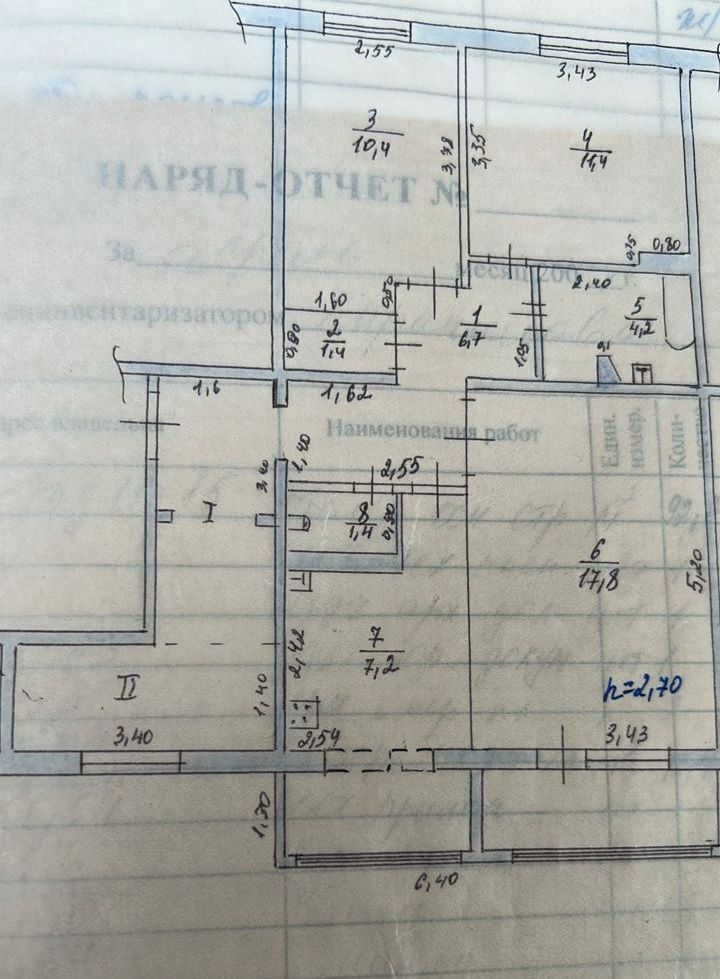 2,55
3,43
3
10,4
3,78
3,35
4
11,4
НАРЯД-ОТЧЕТ №
За
месяц 200 г.
0,80
2,40
1,60
2
1,4
0,90
1
6,7
1,05
5
4,2
0,1
1,6
1,62
Наименования работ
Един.
измер.
Коли-
1,40
3,40
2,55
I
8
1,4
0,90
6
17,8
5,20
7
7,2
2,42
h=2,70
II
1,40
3,40
2,54
3,43
1,30
6,40